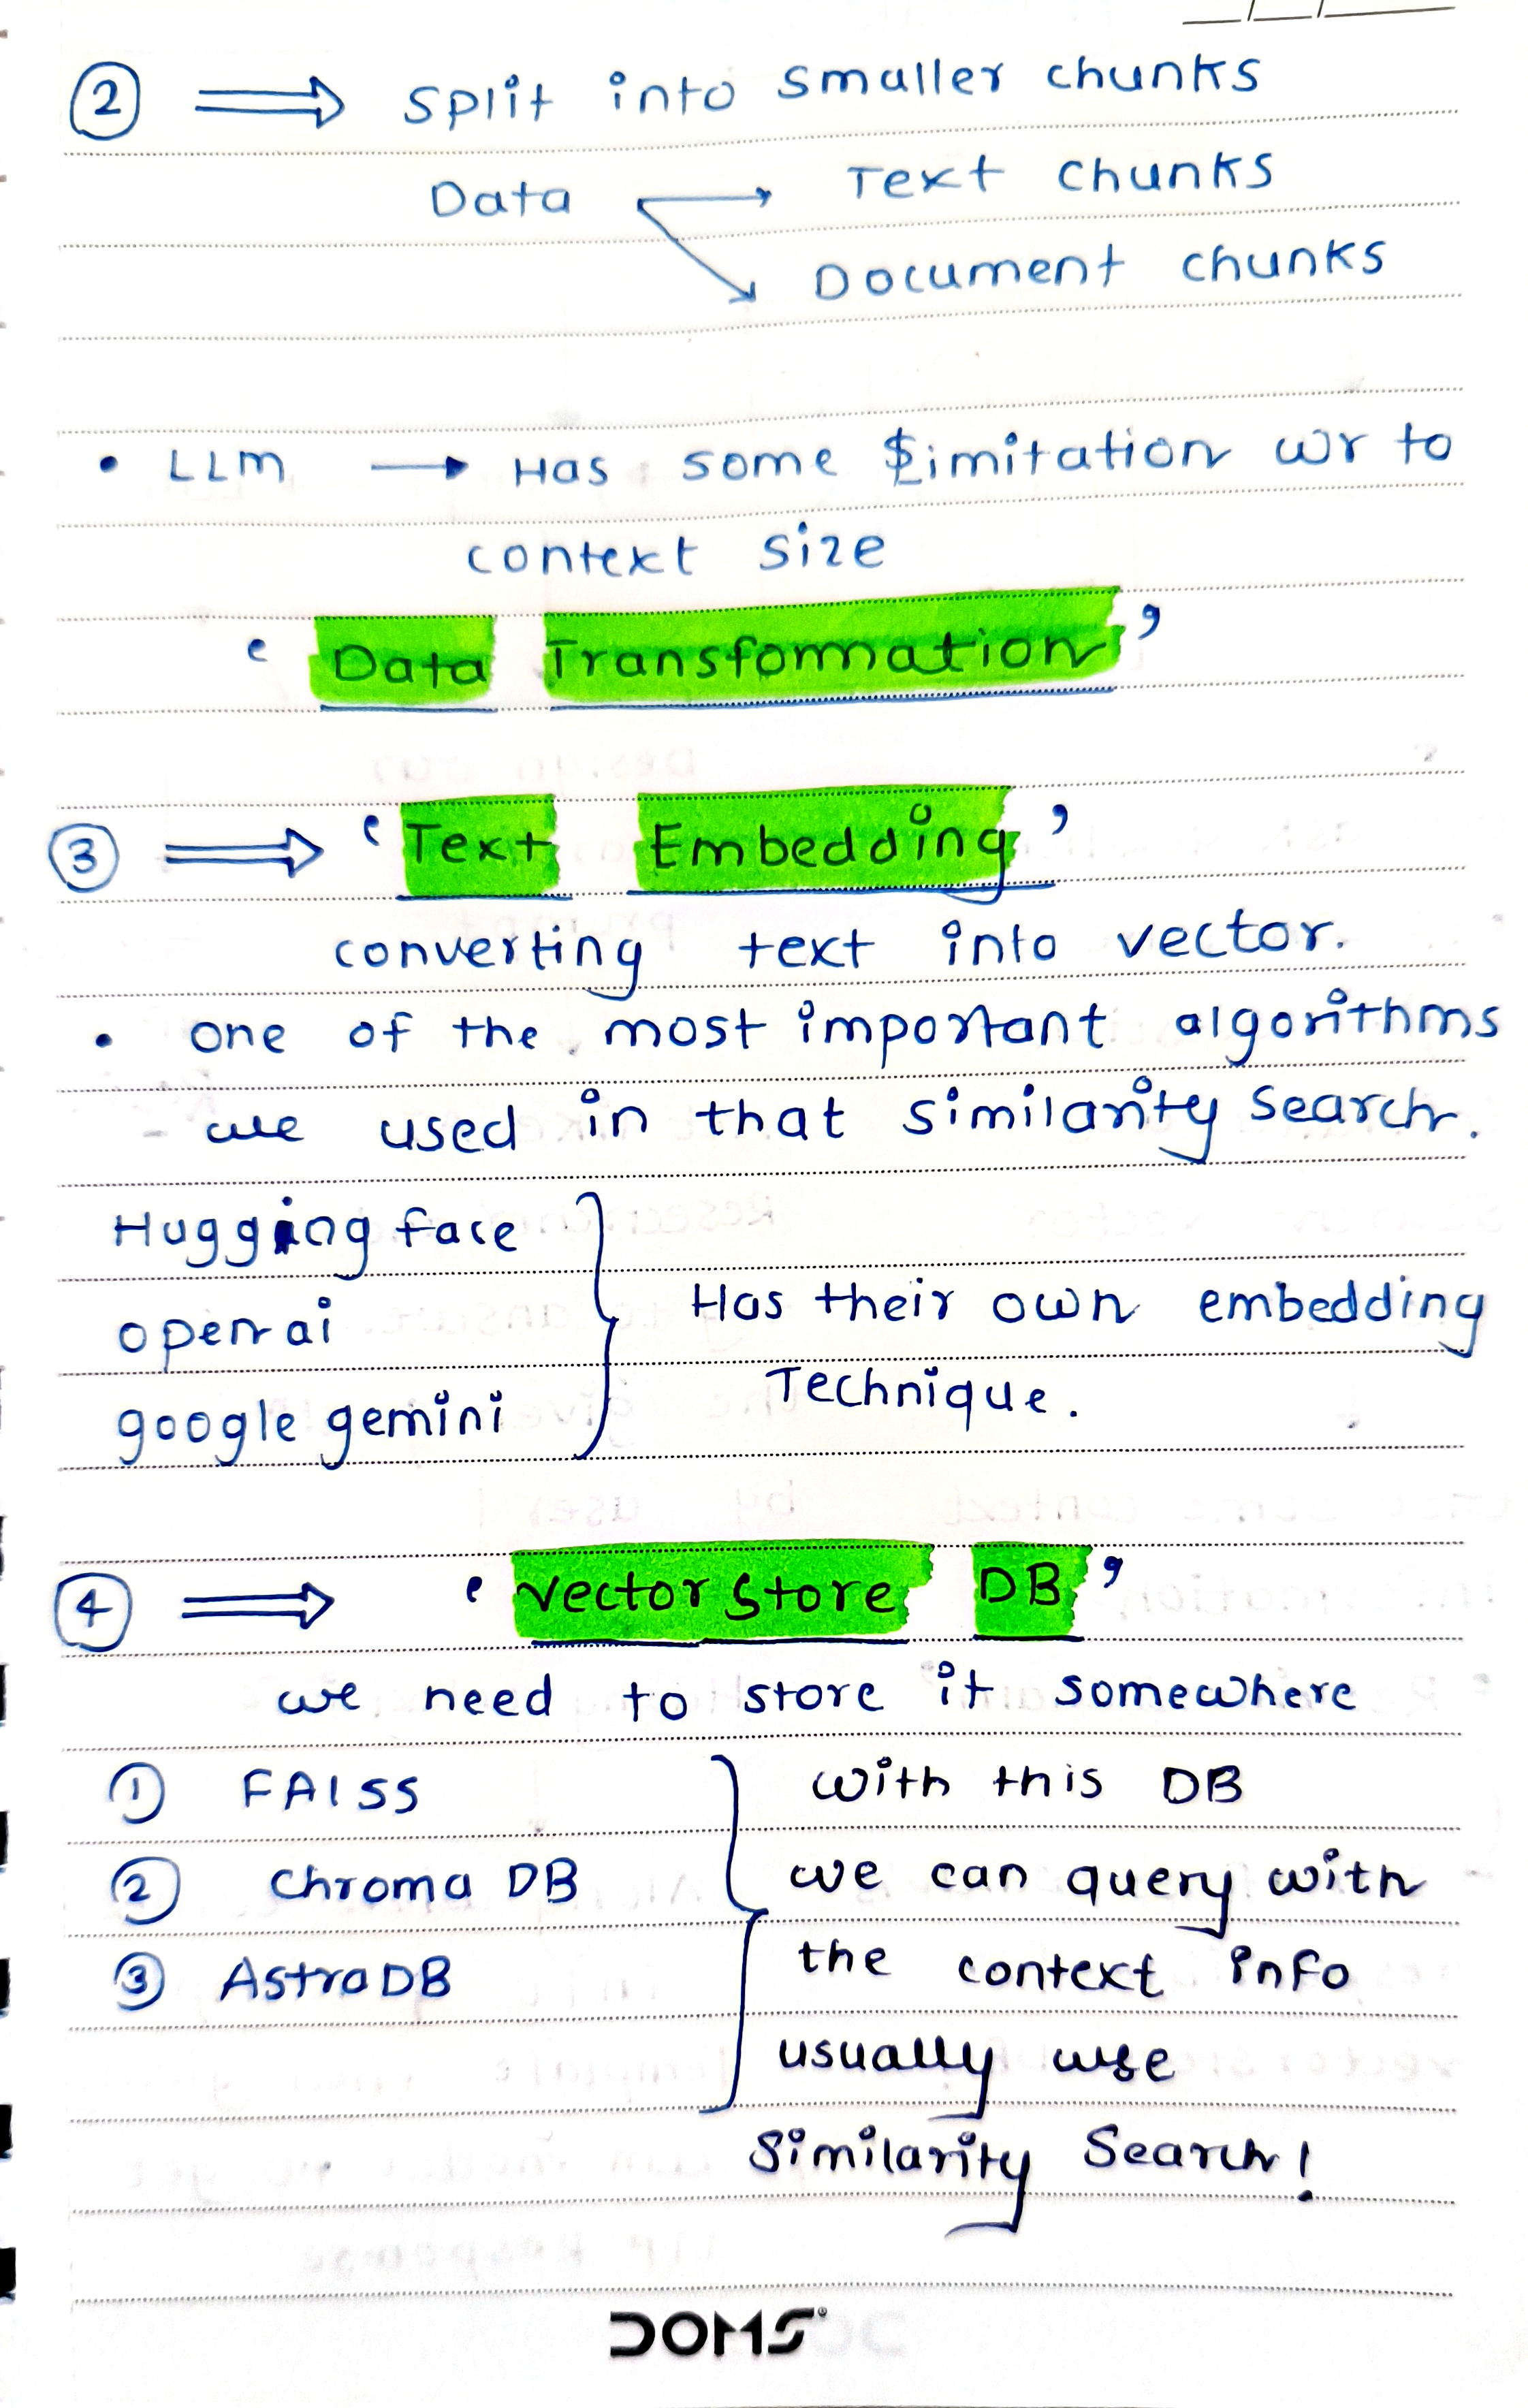 ② ⟹ Split into smaller chunks
Data → Text chunks
↘ Document chunks
• LLM → Has some Limitation wr to
context size
‘ Data Transformation ’
③ ⟹ ‘ Text Embedding ’
converting text into vector.
• One of the most important algorithms
we used in that similarity search.
Hugging face
open ai
google gemini
Has their own embedding
Technique.
④ ⟹ ‘ Vector Store DB ’
we need to store it somewhere
① FAISS
② Chroma DB
③ Astra DB
with this DB
we can query with
the context info
usually use
Similarity Search!
DOMS